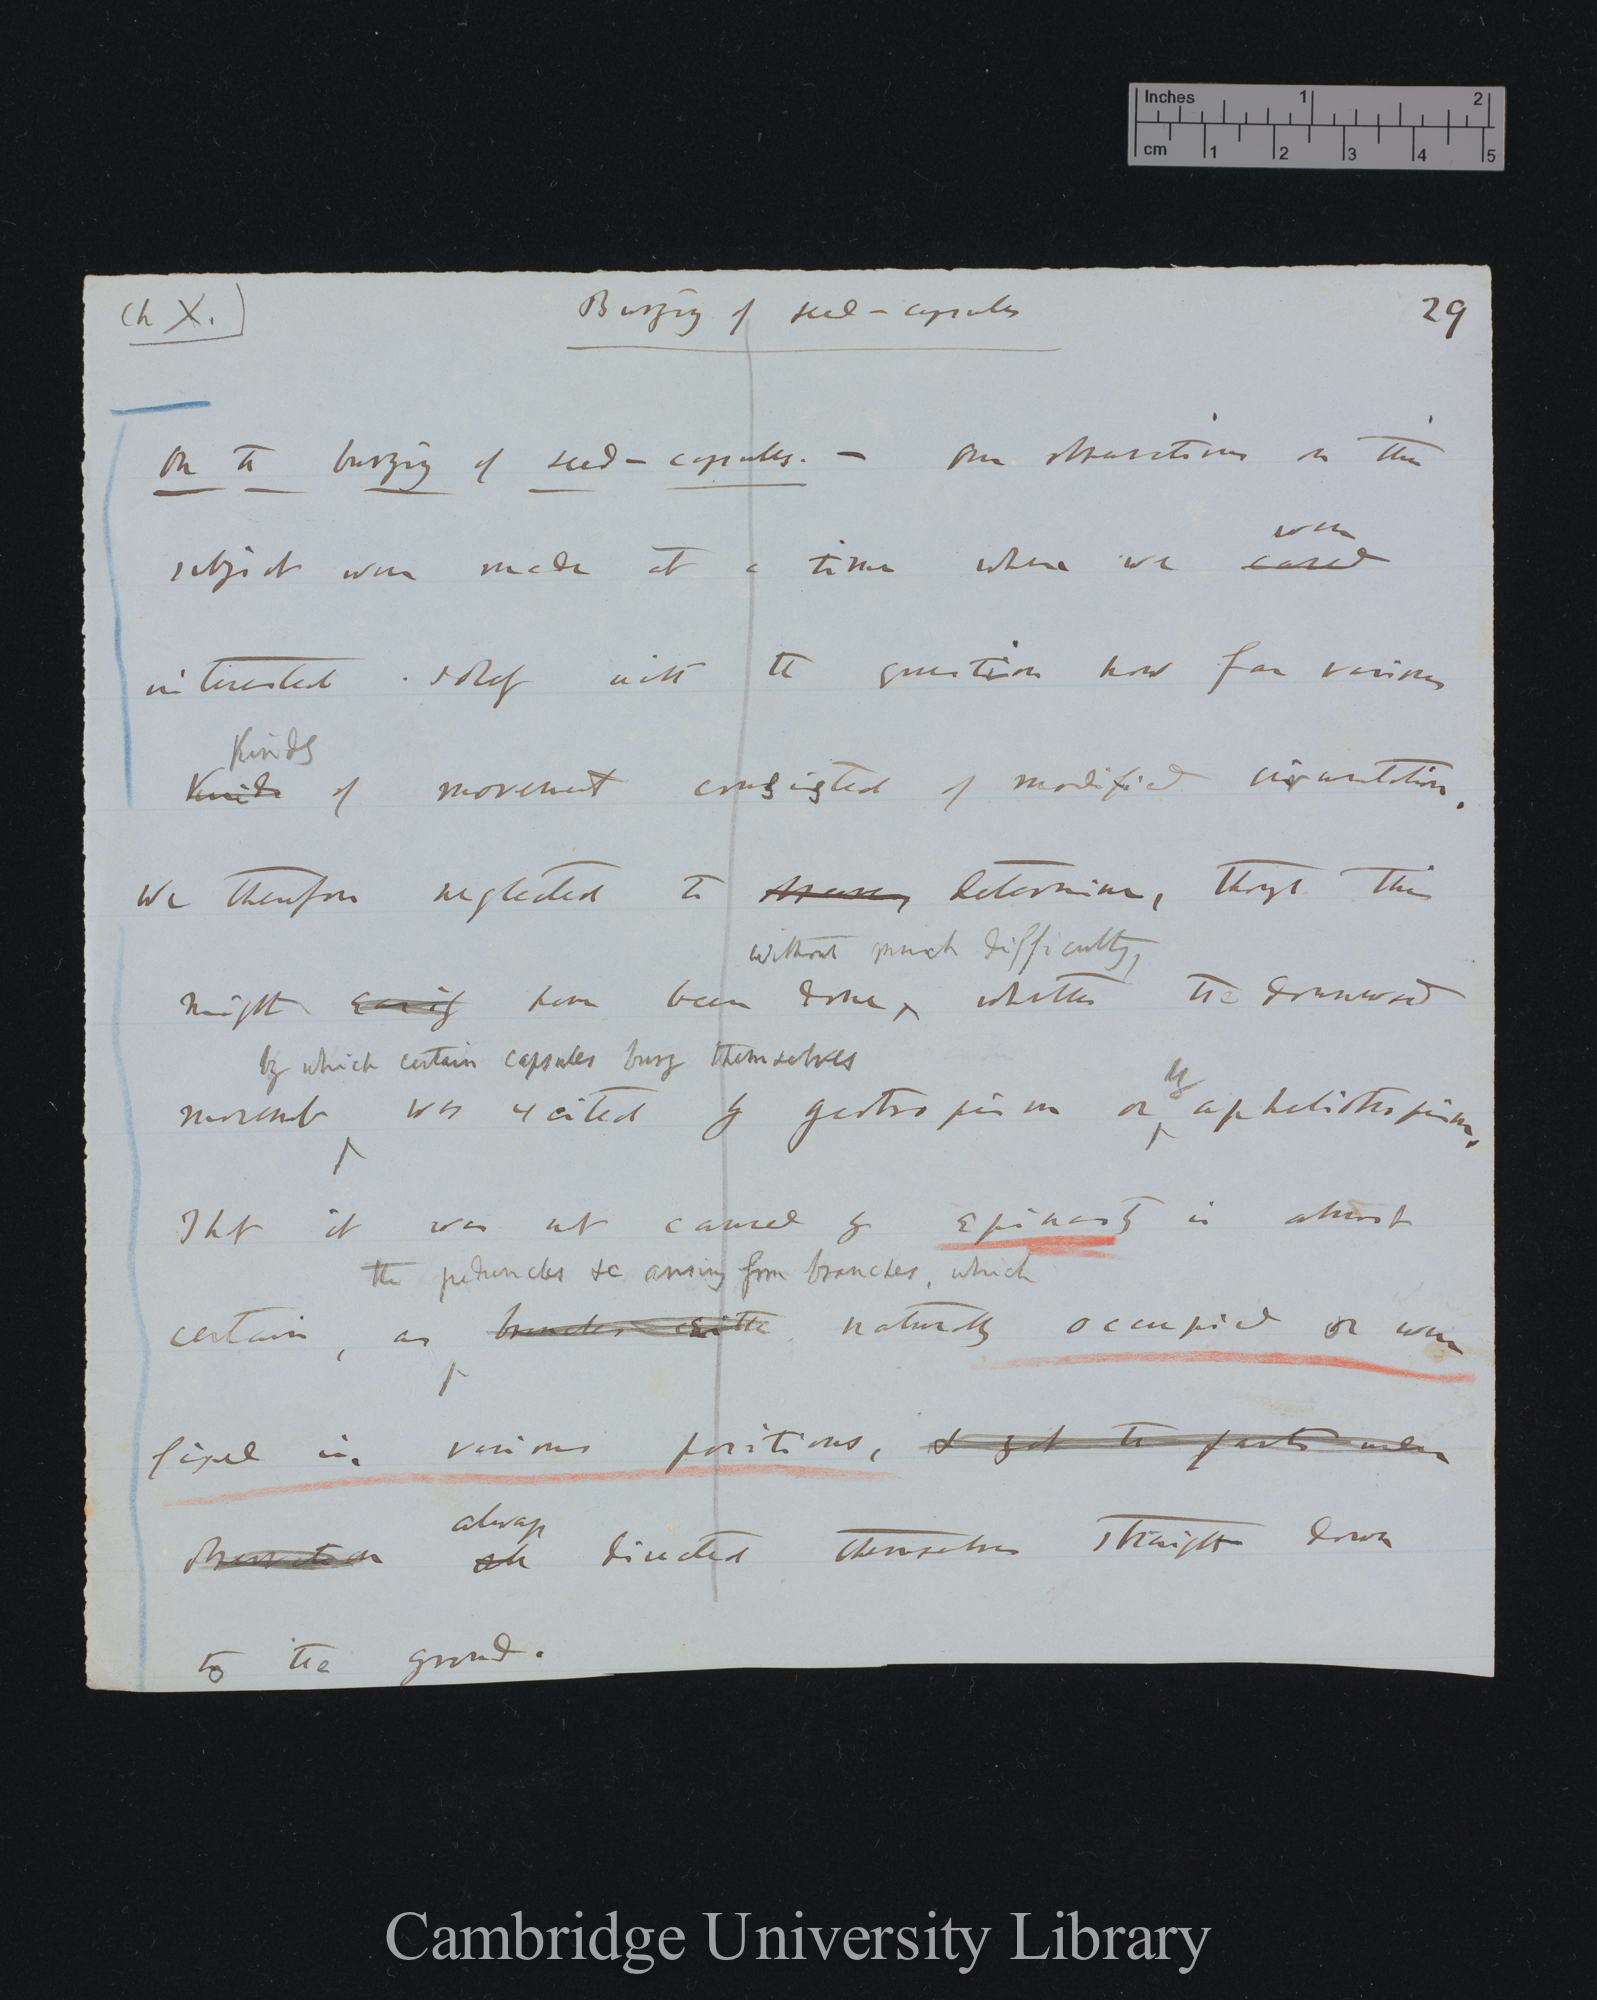 Inches 1 2
cm 1 2 3 4 5
Ch X.
Burying of seed-capsules
29
On the burying of seed-capsules. — Our observations on this
were
subject were made at a time when we cared
interested chiefly with the question how far various
Kinds
Kinds of movement consisted of modified circumnutation.
We therefore neglected to determine, though this
without much difficulty,
might easily have been done, whether the downward
by which certain capsules bury themselves
by
movement was excited by geotropism or apheliotropism.
That it was not caused by epinasty is almost
the peduncles &c arising from branches, which
certain, as branches naturally occupied or were
fixed in various positions, & yet the parts under
always
observation directed themselves straight down
to the ground.
Cambridge University Library